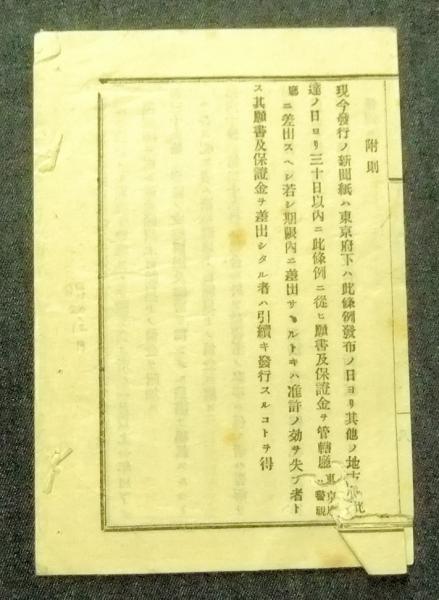 附則
現今發行ノ新聞紙ハ東京府下ハ此條例發布ノ日ヨリ其他ノ地方ハ此
達ノ日ヨリ三十日以內ニ此條例ニ從ヒ願書及保證金ヲ管轄廳東京ハ警視
廳ニ差出スヘシ若シ期限內ニ差出サヽルトキハ准許ノ効ヲ失フ者ト
ス其願書及保證金ヲ差出シタル者ハ引續キ發行スルコトヲ得